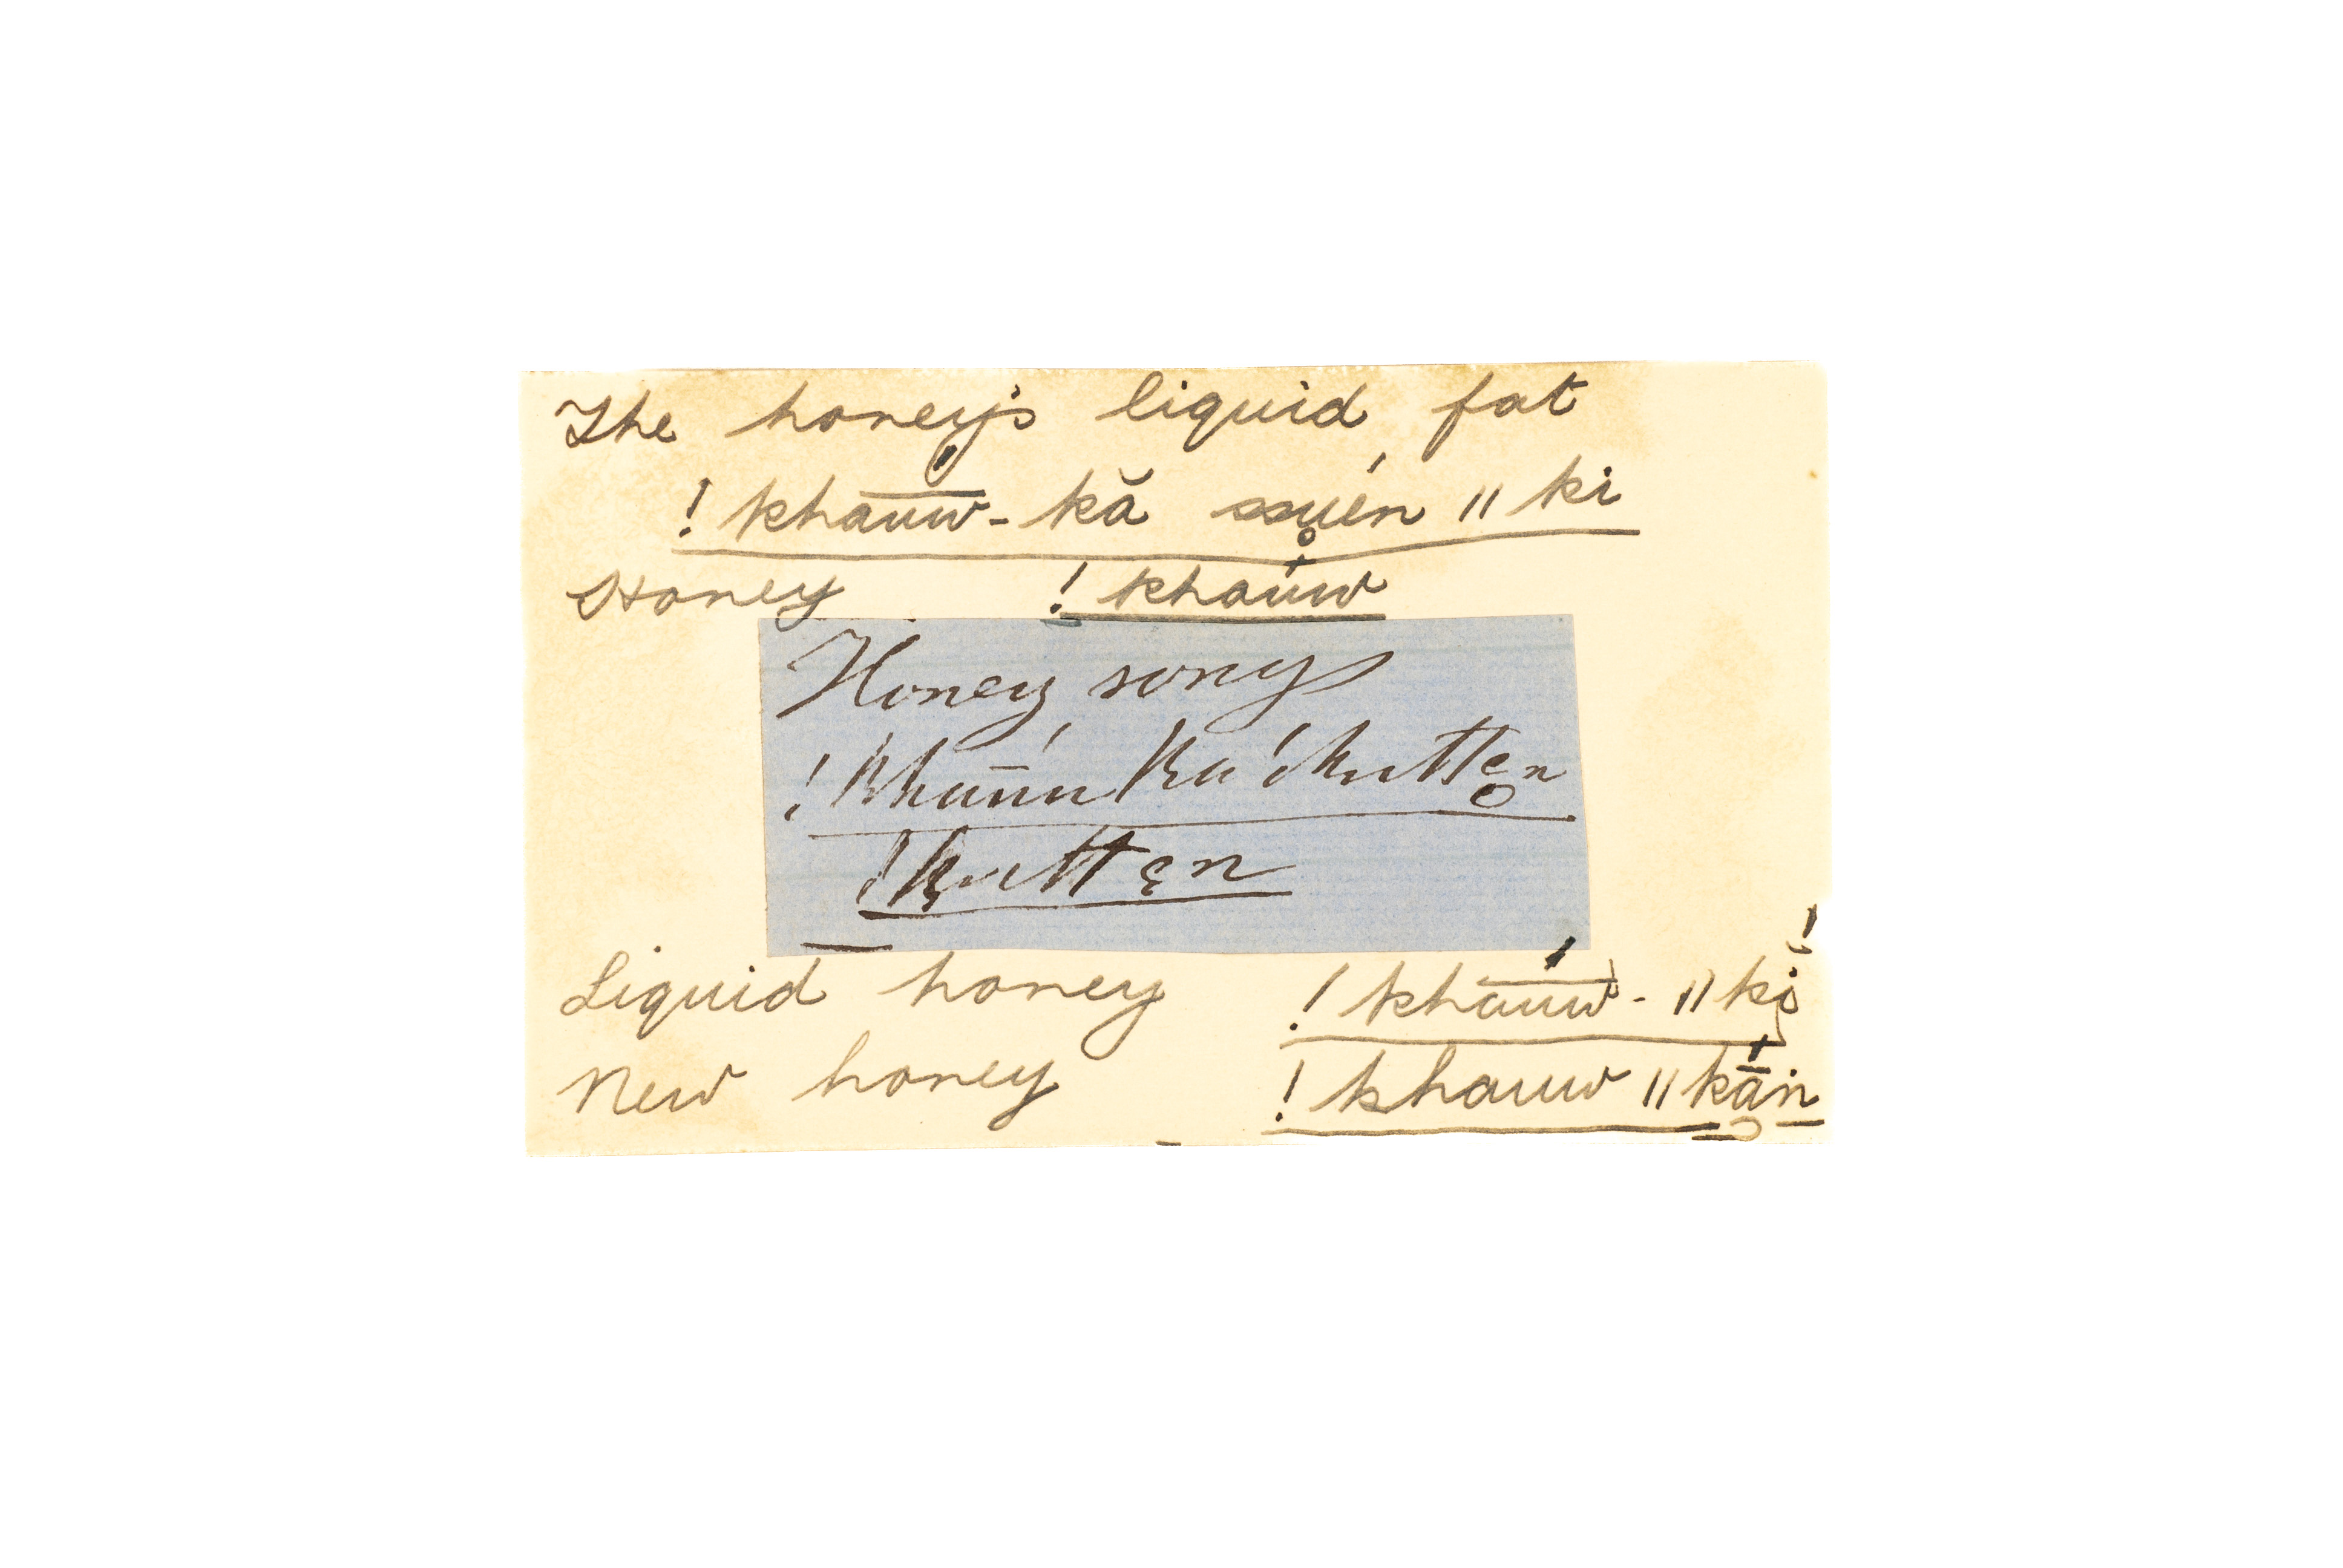 The honey's liquid fat
! khau̅́w̅-kă ssu̥én ǁ ki
Honey ! khaúw
Honey song
!khaū́u ka !kuttęn
!kuttęn
Liquid honey ! khau̅́w̅-ǁkĭ́
New honey ! khauw ǁkḁ̄́ṅ